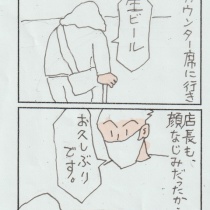 カウンター席に行き
生ビール
店長も、
顔なじみだったから
お久しぶり
です。